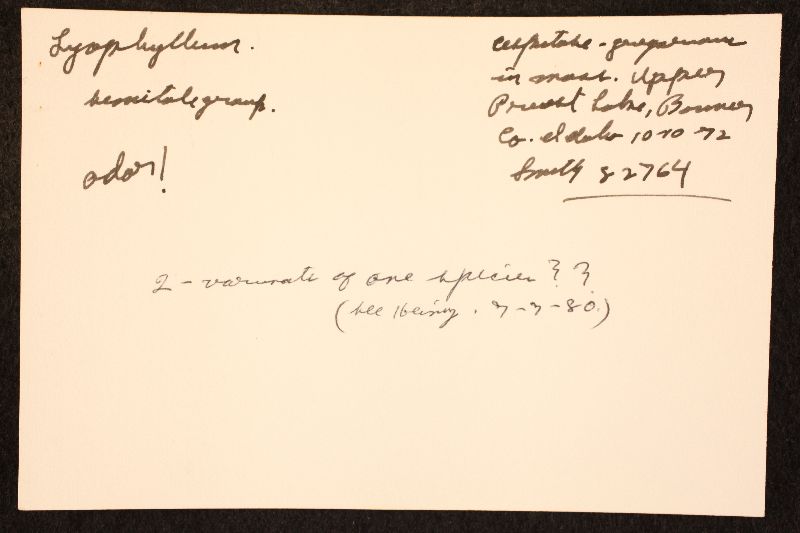 Lyophyllum.
semitale group.
odor!
cespitose - gregarious
in moss. Upper
Priest Lake, Bonner
Co. Idaho 10-10-72
Smith 82764
2 - variants of one species ? ?
(see 7-7-80.)